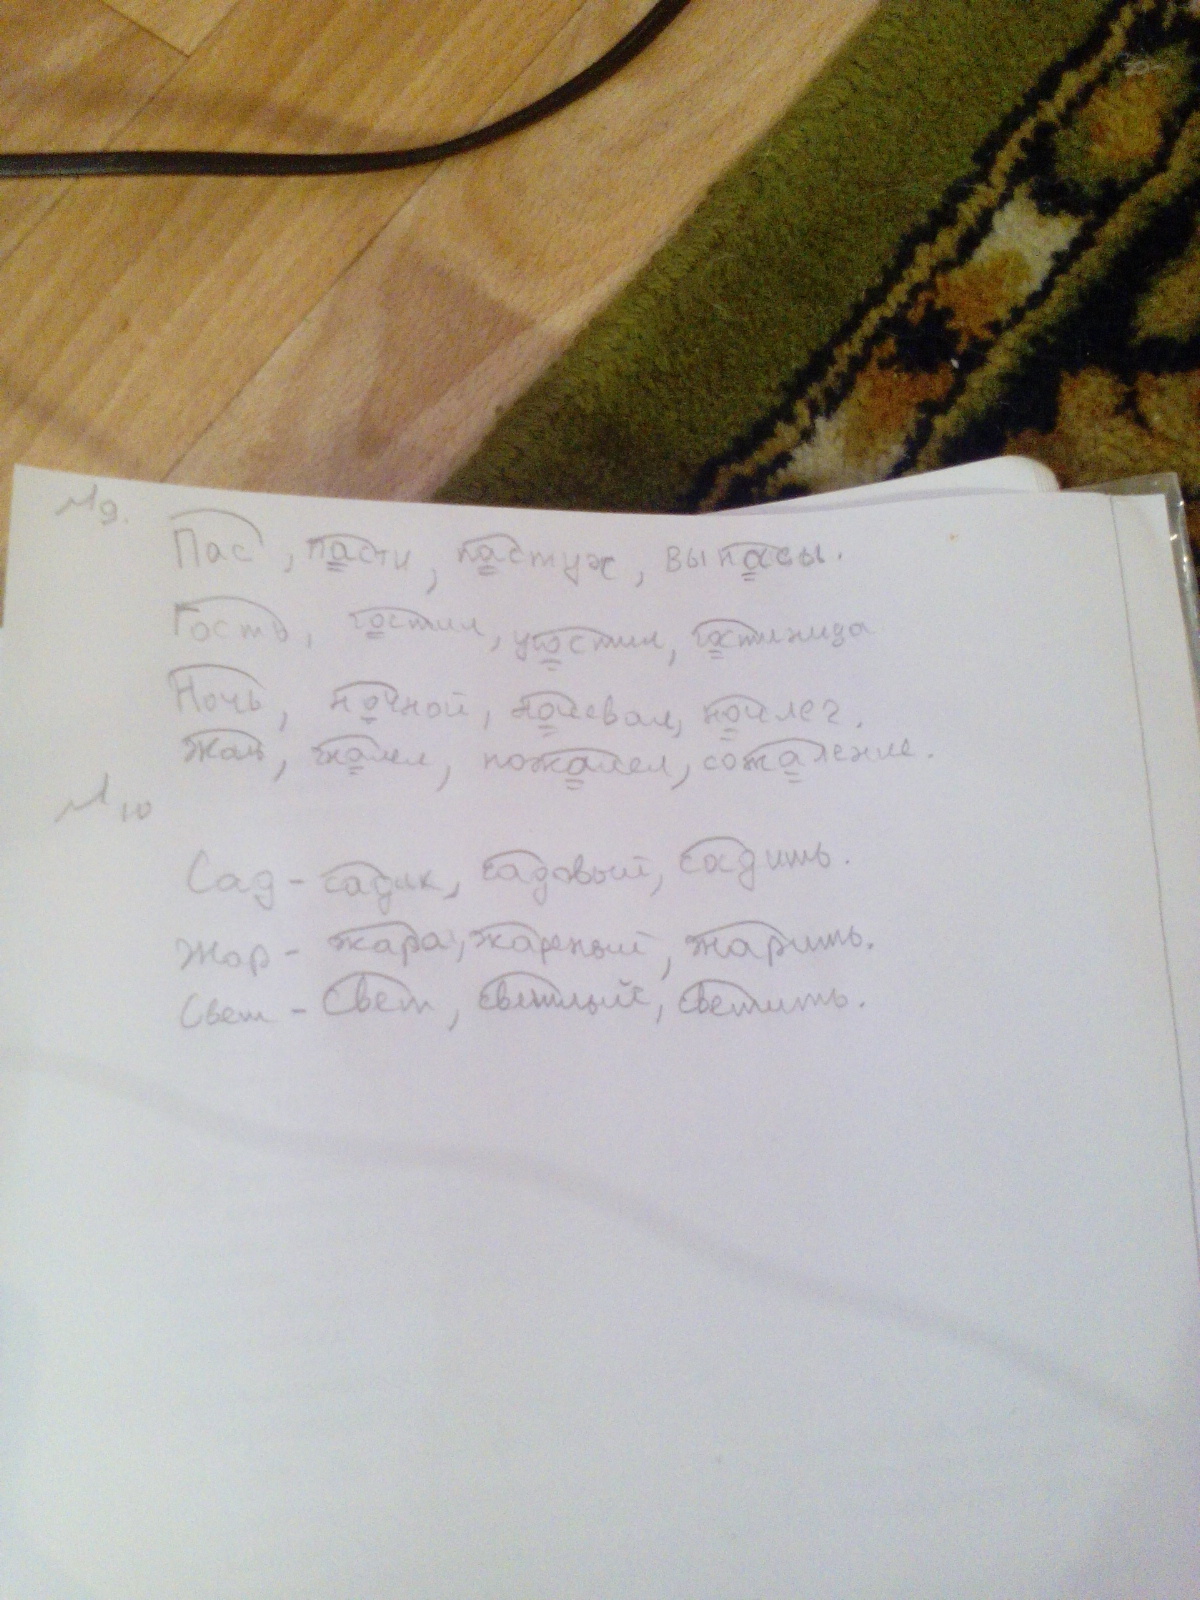 №9.
Пас, пасти, пастух, выпасы.
Гость, гостил, угостил, гостиница
Ночь, ночной, ночевал, ночлег.
Жаль, жалел, пожалел, сожаление.
№10
Сад - садик, садовый, садить.
Жар - жара, жареный, жарить.
Свет - Свет, светлый, светить.